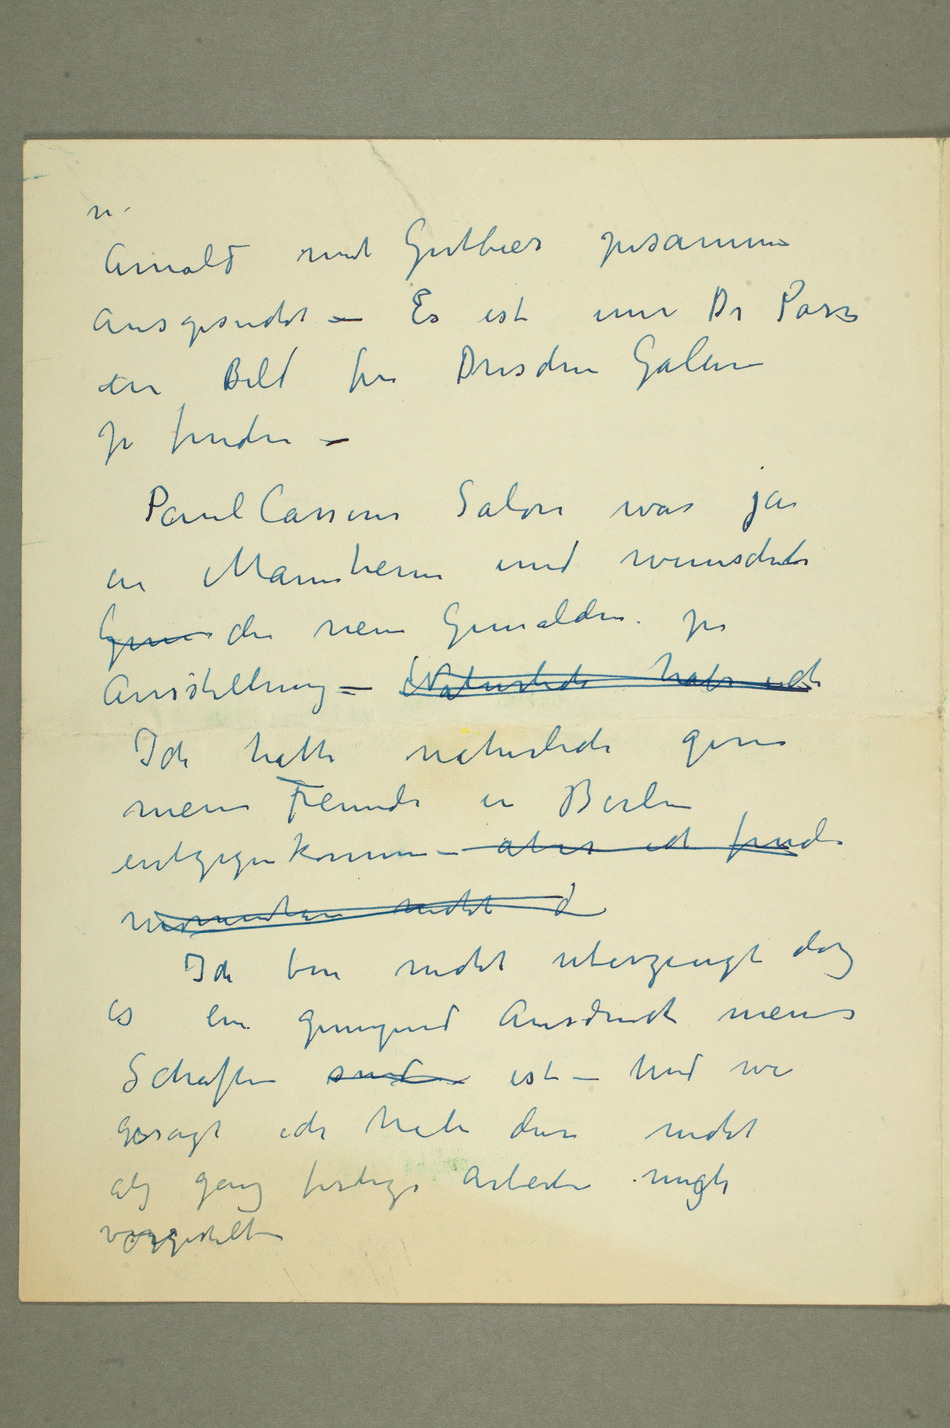 n.
Arnold mit Gutbier zusammen
ausgesucht – Es ist um Dr Poss
ein Bild für Dresden Galerie
zu finden –
Paul Cassirer Salon war ja
in Mannheim und wunschte
die neue Gemälden. zu
Ausstellung – Naturlich habe ich
Ich hatte naturlich gern
meine Freunde in Berlin
entgegenkommen – aber ich finde
momentan nicht d
Ich bin nicht uberzeugt daz
es ein genugend Ausdruck meines
Schaffen sind ist – Und wie
gesagt ich habe diese nicht
alz ganz fertige Arbeiten
vorgestelt